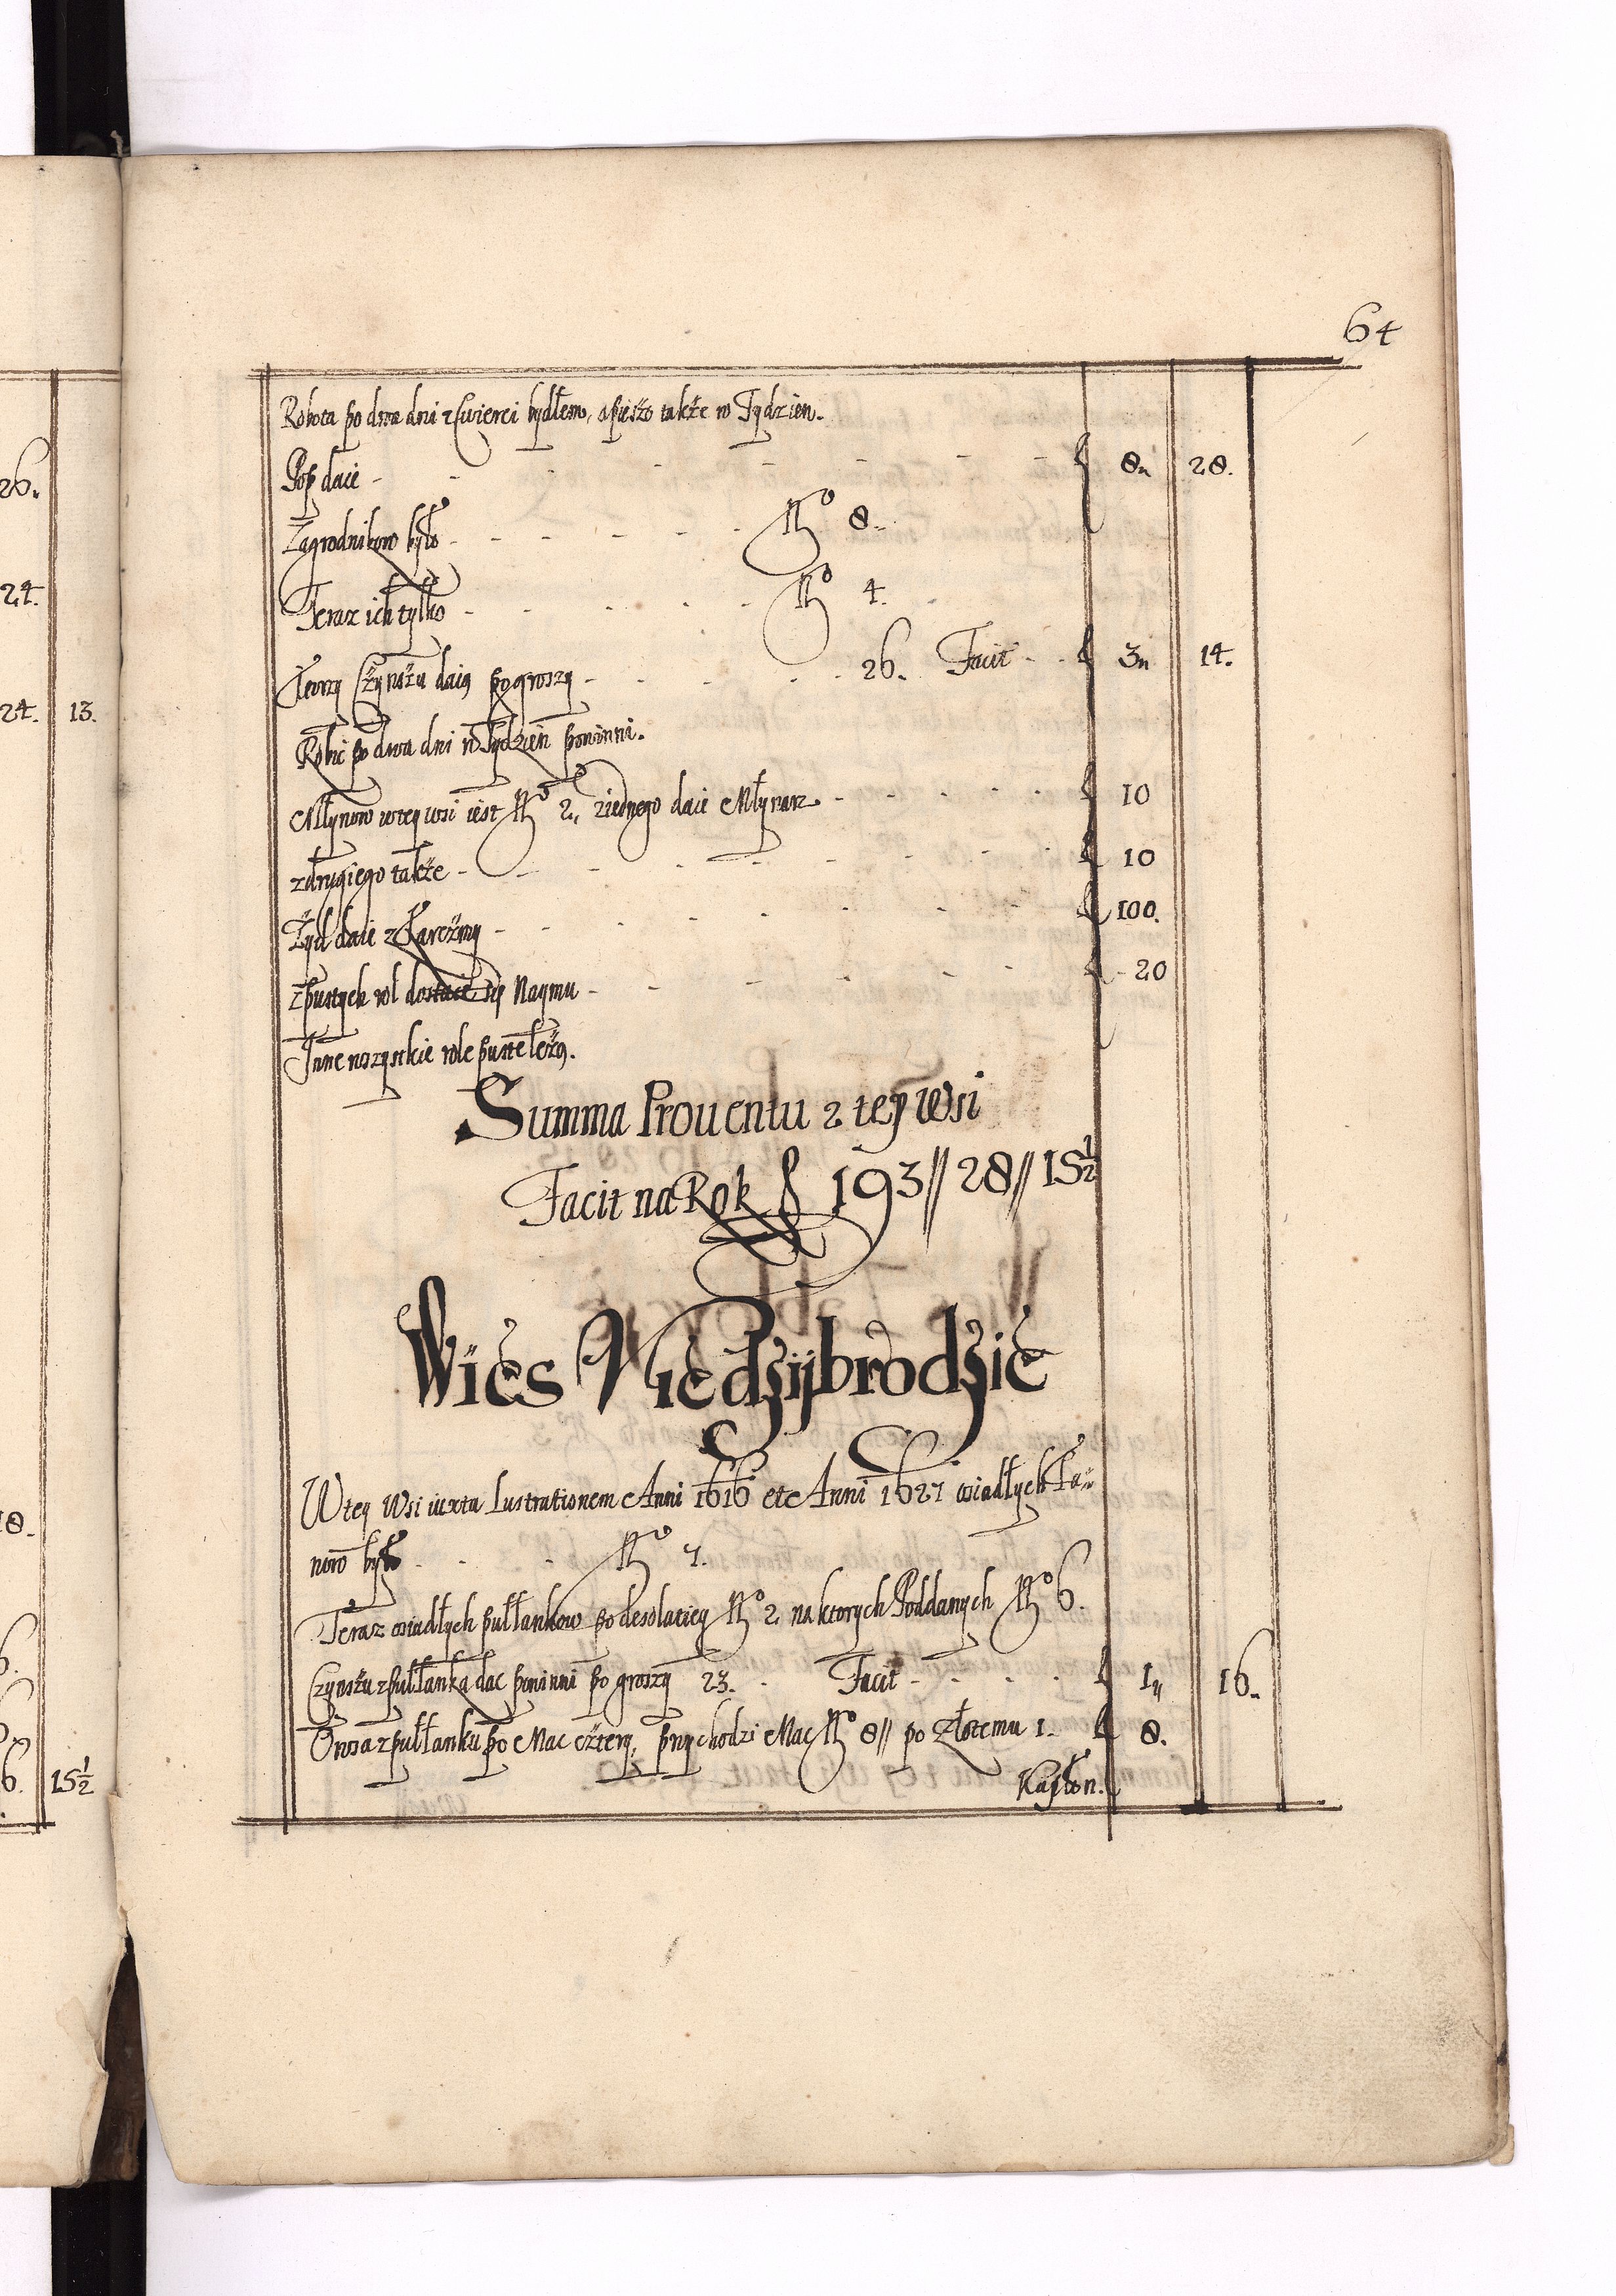 64
Robota po dwa dni z Cwierci bydłem, a pieszo także w Tydzien.
Pop daie - - - - - - 8 28.
Zagrodnikow było - - - - - Nro 8.
Teraz ich tylko - - - - - Nro 4.
Ktorzy Czynszu daią po groszy - - - - 26. Facit - - 3 14.
Robic po dwa dni w Tydzien powinni.
Młynow w tey wsi iest Nro 2, z iednego daie Młynarz - - - - 10
z drugiego także - - - - - - 10
Żyd daie z Karczmy - - - - - - 100.
z pustych rol dostaie się Naymu - - - - - 20
Inne wszystkie role puste leżą.
Summa Prouentu z tey Wsi
Facit na Rok f 193 // 28 // 15 1/2
Wies Miedzÿbrodzie
W tey Wsi iuxta Lustrationem Anni 1616 et Anni 1627 osiadłych Ła=
now było - - - Nro 7.
Teraz osiadłych pułłankow po desolatiey Nro 2. na ktorych Poddanych Nro 6.
Czynszu z pułłanka dac powinni po groszy 23. - Facit - - - - 1 16.
Owsa z pułłanku po Mac cztery, przychodzi Mac Nro 8 // po złotemu 1. 8.
Kapłon.
26.
24.
24. 13.
18.
6.
6. 15 1/2